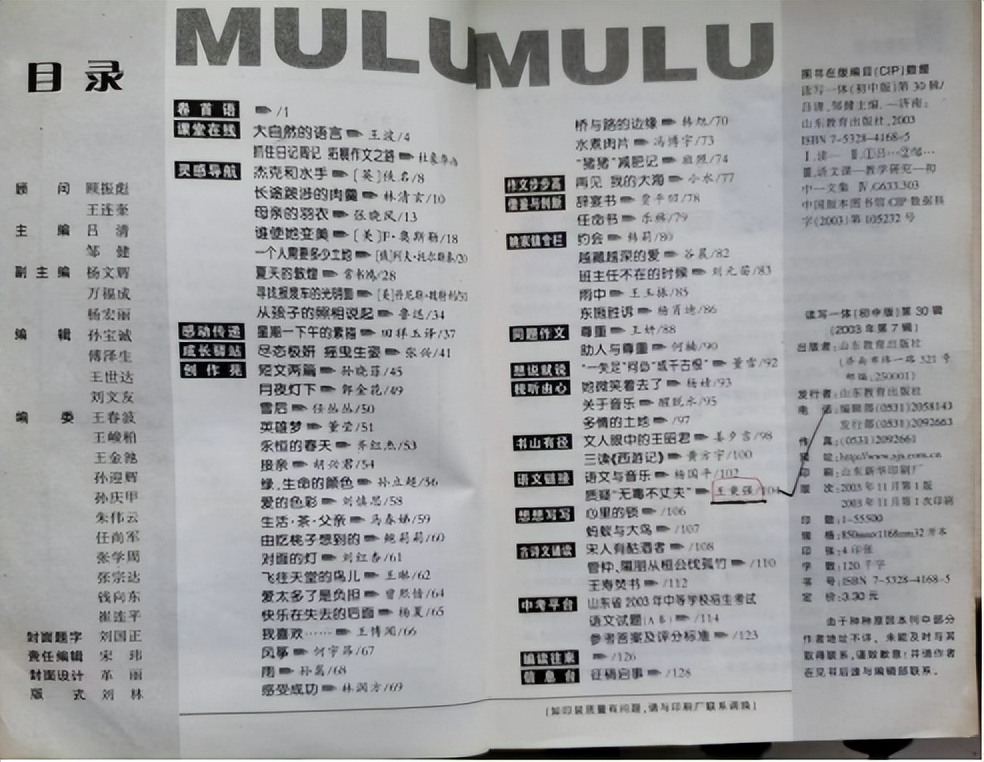 目录
顾问 顾振彪
王连奎
主编 吕清
邹健
副主编 杨文辉
万福成
杨宏丽
编辑 孙宝诚
傅泽生
王世达
刘文友
编委 王春波
王峻柏
王金艳
孙迎辉
孙庆甲
朱伟云
任尚军
张学周
张宗达
钱向东
崔连平
封面题字 刘国正
责任编辑 宋玮
封面设计 革丽
版式 刘林
MULU
卷首语 /1
课堂在线 大自然的语言 王波/4
抓住日记周记 拓展作文之路
灵感导航 杰克和水手 [英]佚名/8
长途跋涉的肉羹 林清玄/10
母亲的羽衣 张晓风/13
谁使她变美 [美]F·奥斯勒/18
一个人需要多少土地 [俄]列夫·托尔斯泰/20
夏天的敦煌 常书鸿/28
寻找报废车的光明面
从孩子的照相说起 鲁迅/34
感动传递 星期一下午的素描 田祥玉译/37
成长驿站 尽态极妍 摇曳生姿 张兴/41
创作苑 短文两篇 孙晓菲/45
月夜灯下 郭金花/49
雪后 任丛丛/50
英雄梦 董莹/51
永恒的春天 齐红杰/53
接亲 胡兴君/54
绿,生命的颜色 孙立超/56
爱的色彩 刘慎思/58
生活·茶·父亲 马春娣/59
由吃桃子想到的 鲍莉莉/60
对面的灯 刘红杏/61
飞往天堂的鸟儿 王琳/62
爱太多了是负担 曾熙情/64
快乐在失去的后面 杨夏/65
我喜欢…… 王博闻/66
风筝 何宇昂/67
雨 孙嵩/68
感受成功 林润方/69
MULU
桥与路的边缘 韩旭/70
水煮肉片 冯博宇/73
“猪猪”减肥记 班煦/74
作文步步高 再见 我的大海 小水/77
借鉴与创新 辞宴书 贾平凹/78
任命书 乐栋/79
姚家镇专栏 约会 韩莉/80
越藏越深的爱 谷晨/82
班主任不在的时候 刘元茹/83
雨中 王玉振/85
东施胜诉 杨肖迪/86
同题作文 尊重 王妍/88
助人与尊重 何楠/90
想说就说 “一失足”何必“成千古恨” 董雪/92
倾听由心 她微笑着去了 杨婧/93
关于音乐 醒视水/95
多情的土地 /97
书山有径 文人眼中的王昭君 姜夕言/98
三读《西游记》 黄方宇/100
语文链接 语文与音乐 杨国平/102
质疑“无毒不丈夫” 王秉强/104
想想写写 心里的锁 /106
蚂蚁与大鸟 /107
古诗文诵读 宋人有酤酒者 /108
管仲、隰朋从桓公伐孤竹 /110
王寿焚书 /112
中考平台 山东省2003年中等学校招生考试
语文试题(A B) /114
参考答案及评分标准 /123
编读往来 /126
信息台 征稿启事 /128
(如印装质量有问题,请与印刷厂联系调换)
图书在版编目(CIP)数据
读写一体(初中版)第30辑/
吕清,邹健主编.—济南:
山东教育出版社,2003
ISBN 7-5328-4168-5
Ⅰ.读… Ⅱ.①吕…②邹…
Ⅲ.语文课—教学研究—初
中—文集 Ⅳ.G633.303
中国版本图书馆CIP数据核
字(2003)第105232号
读写一体(初中版)第30辑
(2003年第7辑)
出版者:山东教育出版社
(济南市纬一路321号
邮编:250001)
发行者:山东教育出版社
电话:编辑部(0531)2058143
发行部(0531)2092663
传真:(0531)2092661
网址:http://www.sjs.com.cn
印刷:山东新华印刷厂
版次:2003年11月第1版
2003年11月第1次印刷
印数:1-55500
规格:850mm×1168mm32开本
印张:4印张
字数:120千字
书号:ISBN 7-5328-4168-5
定价:3.30元
由于种种原因本刊中部分
作者地址不详,未能及时与其
取得联系,谨致歉意!并请作者
在见书后速与编辑部联系。